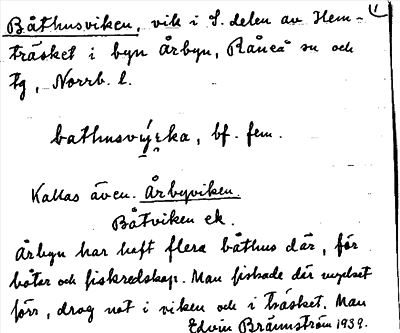 Båthusviken, vik i S. delen av Hem-
träsket i byn Årbyn, Råneå sn och
tg, Norrb. l.
bathusvýrka, bf. fem.
Kallas även. Årbyviken.
Båtviken ek.
Årbyn har haft flera båthus där, för
båtar och fiskredskap. Man fiskade där mycket
förr, drog not i viken och i träsket. Man
Edvin Brännström 1939.